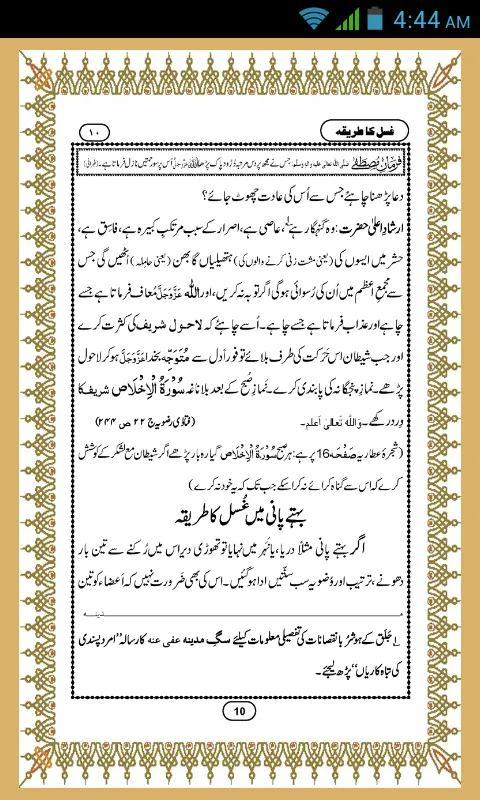 4:44 AM
غسل کا طریقہ
۱۰
فرمانِ مصطفٰے صلی اللہ تعالیٰ علیہ والہ وسلم: جس نے مجھ پر دس مرتبہ دُرُود پاک پڑھا اللہ عزوجل اُس پر سو رحمتیں نازل فرماتا ہے۔ (طبرانی)
دعا پڑھنا چاہئے جس سے اُس کی عادت چھوٹ جائے؟
ارشادِ اعلیٰ حضرت: وہ گنہگار ہے ۱؎، عاصی ہے، اصرار کے سبب مرتکبِ کبیرہ ہے، فاسِق ہے،
حشر میں ایسوں کی (یعنی مشت زنی کرنے والوں کی) ہتھیلیاں گابھن (یعنی حاملہ) اٹھیں گی جس
سے مجمعِ اعظم میں اُن کی رُسوائی ہوگی اگر توبہ نہ کریں، اور اللہ عَزَّوَجَلَّ معاف فرماتا ہے جسے
چاہے اور عذاب فرماتا ہے جسے چاہے۔ اُسے چاہئے کہ لاحول شریف کی کثرت کرے
اور جب شیطان اس حَرَکت کی طرف بلائے تو فوراً دل سے مُتَوَجِّہ بخدا عَزَّوَجَلَّ ہو کر لاحول
پڑھے۔ نمازِ پنجگانہ کی پابندی کرے۔ نَمازِ صُبح کے بعد بلا ناغہ سُوْرَۃُ الْاِخْلَاص شریف کا
وِرد رکھے۔ وَاللہُ تَعَالیٰ اَعلم۔ (فتاوٰی رضویہ ج ۲۲ ص ۲۴۴)
(شجرۂ عطاریہ صَفْحَہ 16 پر ہے: ہر صبح سُوْرَۃُ الْاِخْلَاص گیارہ بار پڑھے اگر شیطان مع لشکر کے کوشش
کرے کہ اس سے گناہ کرائے نہ کرا سکے جب تک کہ یہ خود نہ کرے)
بہتے پانی میں غُسل کا طریقہ
اگر بہتے پانی مثلاً دریا، یا نَہر میں نہایا تو تھوڑی دیر اس میں رُکنے سے تین بار
دھونے، ترتیب اور وُضو یہ سب سنّتیں ادا ہو گئیں۔ اس کی بھی ضَرورت نہیں کہ اَعضاء کو تین
مدینہ
۱؎ جَلَق کے ہوشرُبا نقصانات کی تفصیلی معلومات کیلئے سگِ مدینہ عفی عنہ کا رسالہ "امرد پسندی
کی تباہ کاریاں" پڑھ لیجئے۔
10